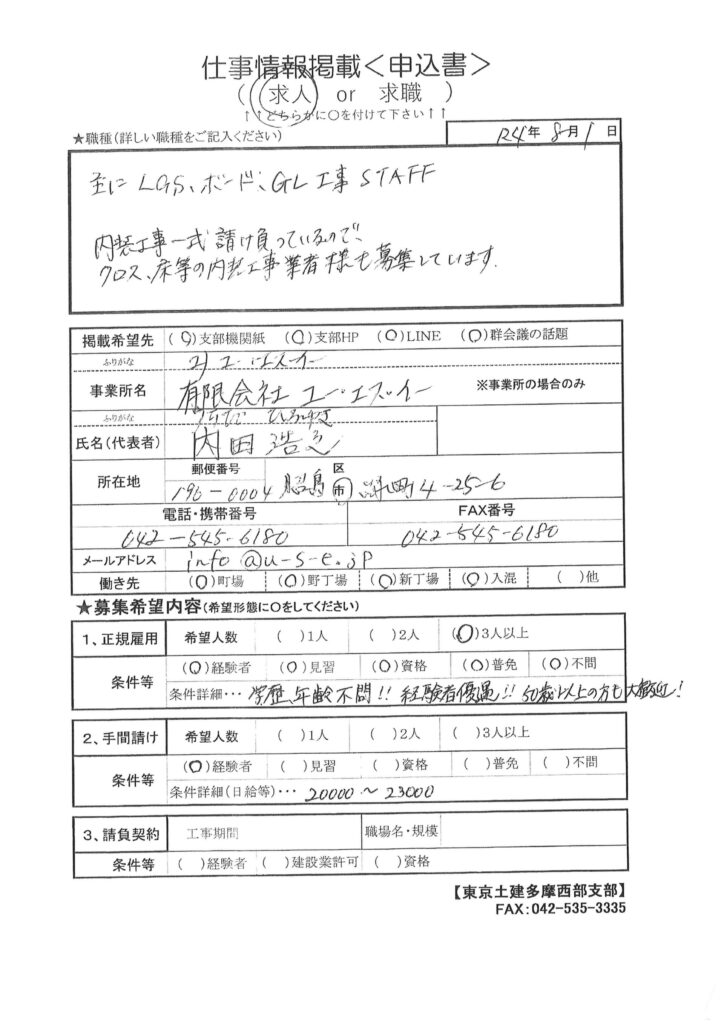 仕事情報掲載＜申込書＞
（ 求人 or 求職 ）
↑↑どちらかに〇を付けて下さい↑↑
★職種（詳しい職種をご記入ください）
R4年 8月1日
主に LGS、ボード、GL工事 STAFF
内装工事一式請け負っているので、
クロス、床等の内装工事業者様も募集しています.
掲載希望先 (〇)支部機関紙 (〇)支部HP (〇)LINE (〇)群会議の話題
ふりがな
事業所名 有限会社 ユー・エス・イー ※事業所の場合のみ
ふりがな うちだ
氏名（代表者） 内田 浩
所在地 郵便番号 区
196-0004 昭島 市 町4-25-6
電話・携帯番号 FAX番号
042-545-6180 042-545-6180
メールアドレス info@u-s-e.jp
働き先 (〇)町場 (〇)野丁場 (〇)新丁場 (〇)入混 ( )他
★募集希望内容（希望形態に〇をしてください）
1、正規雇用 希望人数 ( )1人 ( )2人 (〇)3人以上
条件等 (〇)経験者 (〇)見習 (〇)資格 (〇)普免 (〇)不問
条件詳細・・・ 学歴、年齢不問!! 経験者優遇!! 50歳以上の方も大歓迎!
2、手間請け 希望人数 ( )1人 ( )2人 ( )3人以上
条件等 (〇)経験者 ( )見習 ( )資格 ( )普免 ( )不問
条件詳細（日給等）・・・ 20000～23000
3、請負契約 工事期間 職場名・規模
条件等 ( )経験者 ( )建設業許可 ( )資格
【東京土建多摩西部支部】
FAX：042-535-3335